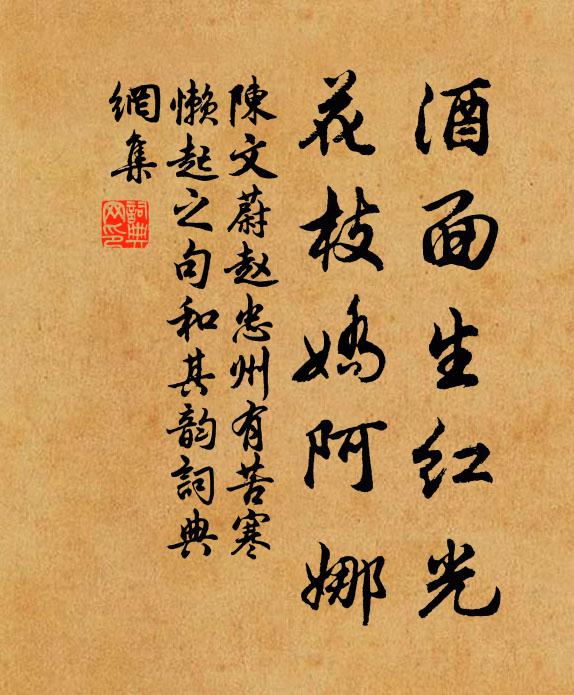 酒面生红光
花枝嬌阿娜
陳文蔚赵忠州有苦寒
懒起之句和其韵詞典
網集
詞典网印